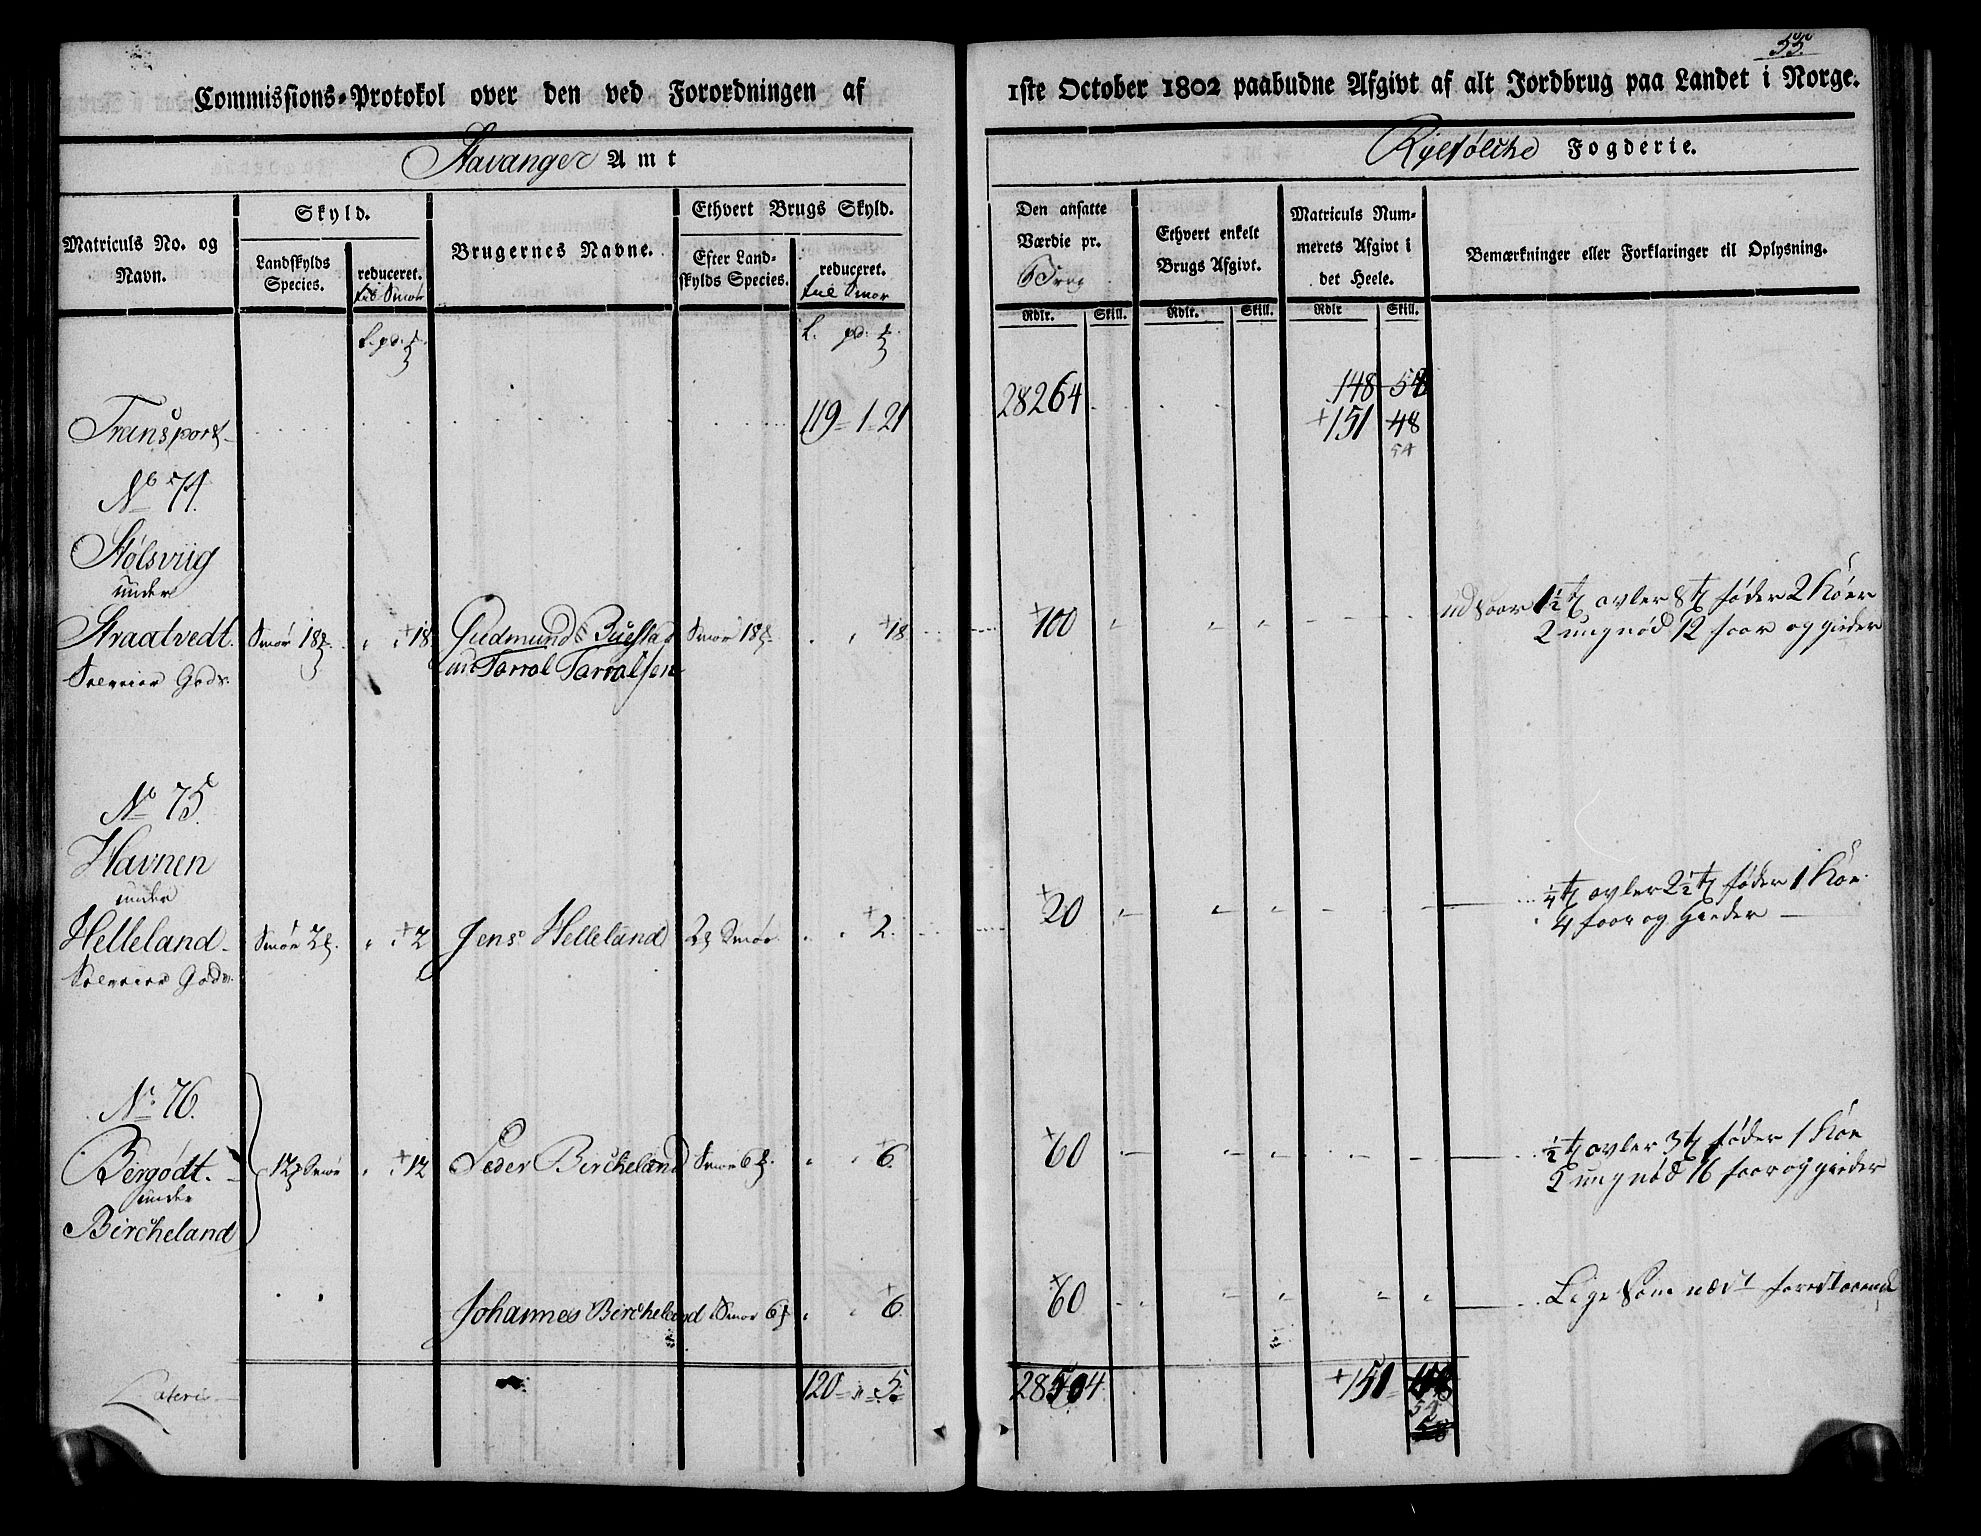 55.
Commissions-Protokol over den ved Forordningen af
1ste October 1802 paabudne Afgivt af alt Jordbrug paa Landet i Norge.
Stavanger Amt
Ryefølche Fogderie.
Matriculs No. og Navn.
Skyld.
Landskylds Species.
reduceret. til Smør
Brugernes Navne.
Ethvert Brugs Skyld.
Efter Landskylds Species.
reduceret. til Smør
Den ansatte Værdie pr. Brug
Ethvert enkelt Brugs Afgivt.
Matriculs Nummerets Afgivt i det Heele.
Bemærkninger eller Forklaringer til Oplysning.
Rdlr. Skill. Rdlr. Skill. Rdlr Skill.
L. pd.
L. pd.
148 58
Transport 119 = 1 = 21 28264 + 151 48
54
No 74.
Stølsviig
under
Straatvedt. Smør 18 + 18 Gudmund Buestad Smør 18 + 18 + 100 udsaar 1½ avler 8 føder 2 Køer
Gods. Tarral Tarralsen 2 ungnød 12 faar og gieder
No 75.
Havnen
under
Helleland Smør 2 + 2 Jens Helleland 2 Smør + 2. + 20 ¼ avler 2½ føder 1 Koe
Gods. 4 faar og gieder
No 76.
Bergødt. 12 Smør + 12 Peder Bircheland Smør 6 + 6. + 60 ½ avler 3 føder 1 Koe
under 2 ungnød 16 faar og gieder
Bircheland
Johannes Bircheland Smør 6 + 6. + 60 Lige som næst forestaaende
Lateris 120 = " = 5 = 28504. + 151
54
58